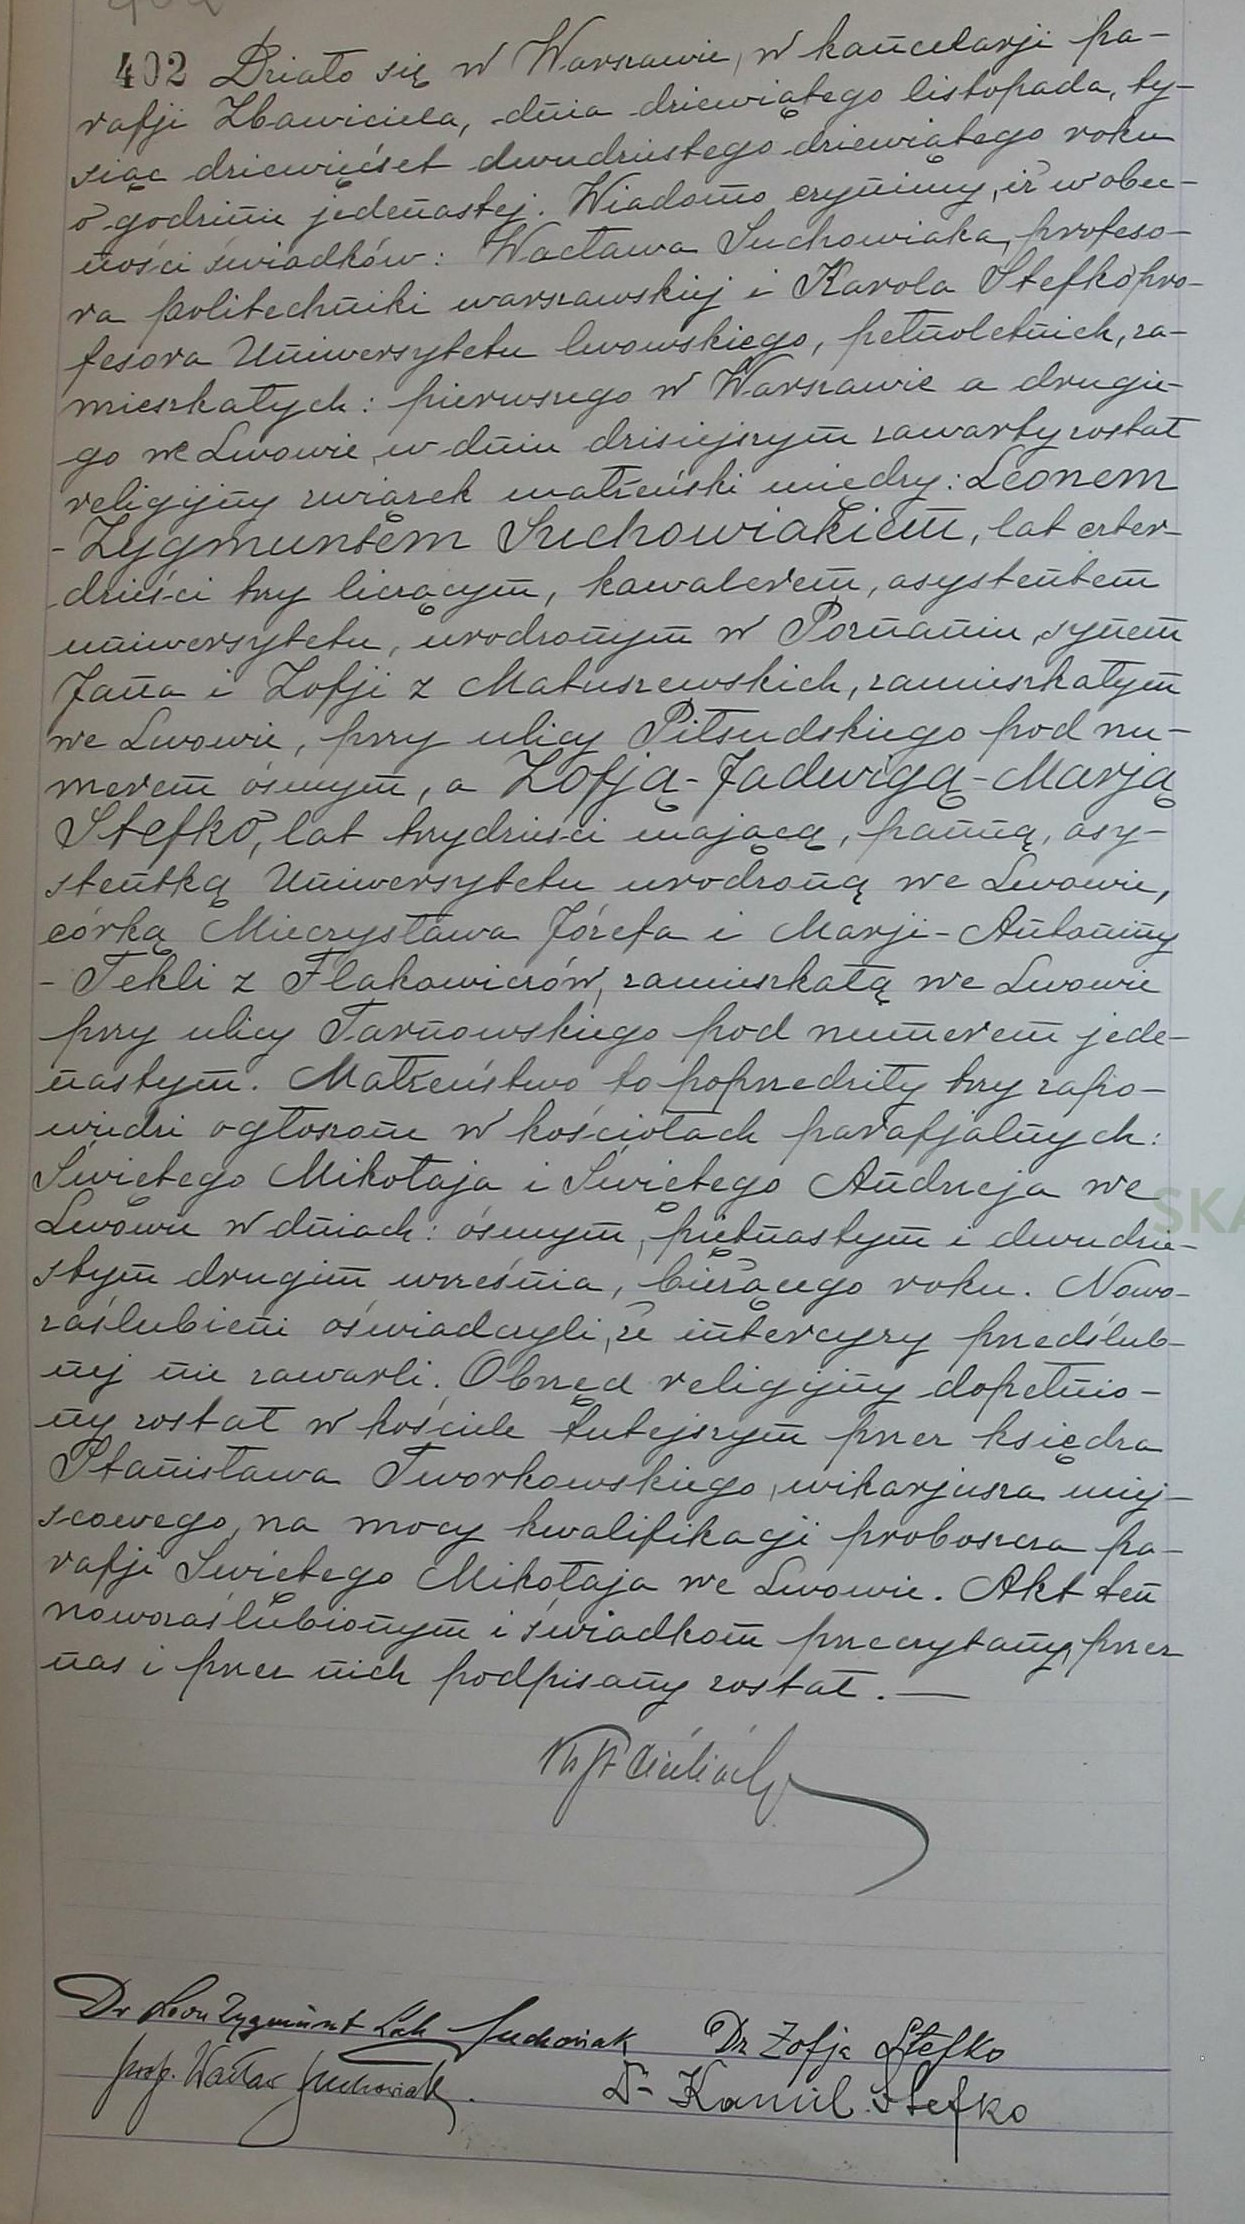 402 Działo się w Warszawie, w kancelarji pa-
rafji Zbawiciela, dnia dziewiątego listopada, ty-
siąc dziewięćset dwudziestego dziewiątego roku
o godzinie jedenastej. Wiadomo czynimy, iż w obec-
ności świadków: Wacława Suchowiaka, profeso-
ra politechniki warszawskiej i Karola Stefko pro-
fesora Uniwersytetu lwowskiego, pełnoletnich, za-
mieszkałych: pierwszego w Warszawie a drugie-
go we Lwowie, w dniu dzisiejszym zawarty został
religijny związek małżeński między: Leonem
-Zygmuntem Suchowiakiem, lat czter-
dzieści trzy liczącym, kawalerem, asystentem
uniwersytetu, urodzonym w Poznaniu, synem
Jana i Zofji z Matuszewskich, zamieszkałym
we Lwowie, przy ulicy Piłsudskiego pod nu-
merem ósmym, a Zofją-Jadwigą-Marją
Stefko, lat trzydzieści mającą, panną, asy-
stentką Uniwersytetu urodzoną we Lwowie,
córką Mieczysława Józefa i Marji-Antoniny
-Tekli z Flakowiczów, zamieszkałą we Lwowie
przy ulicy Tarnowskiego pod numerem jede-
nastym. Małżeństwo to poprzedziły trzy zapo-
wiedzi ogłoszone w kościołach parafjalnych:
Świętego Mikołaja i Świętego Andrzeja we
Lwowie w dniach: ósmym, piętnastym i dwudzie-
stym drugim września, bieżącego roku. Nowo-
zaślubieni oświadczyli, że intercyzy przedślub-
nej nie zawarli. Obrzęd religijny dopełnio-
ny został w kościele tutejszym przez księdza
Stanisława Tworkowskiego, wikarjusza miej-
scowego, na mocy kwalifikacji proboszcza pa-
rafji Świętego Mikołaja we Lwowie. Akt ten
nowozaślubionym i świadkom przeczytany, przez
nas i przez nich podpisany został. —
Dr Leon Zygmunt Lch Suchowiak Dr Zofja Stefko
prof. Wacław Suchowiak. Dr Kamil Stefko
SKA